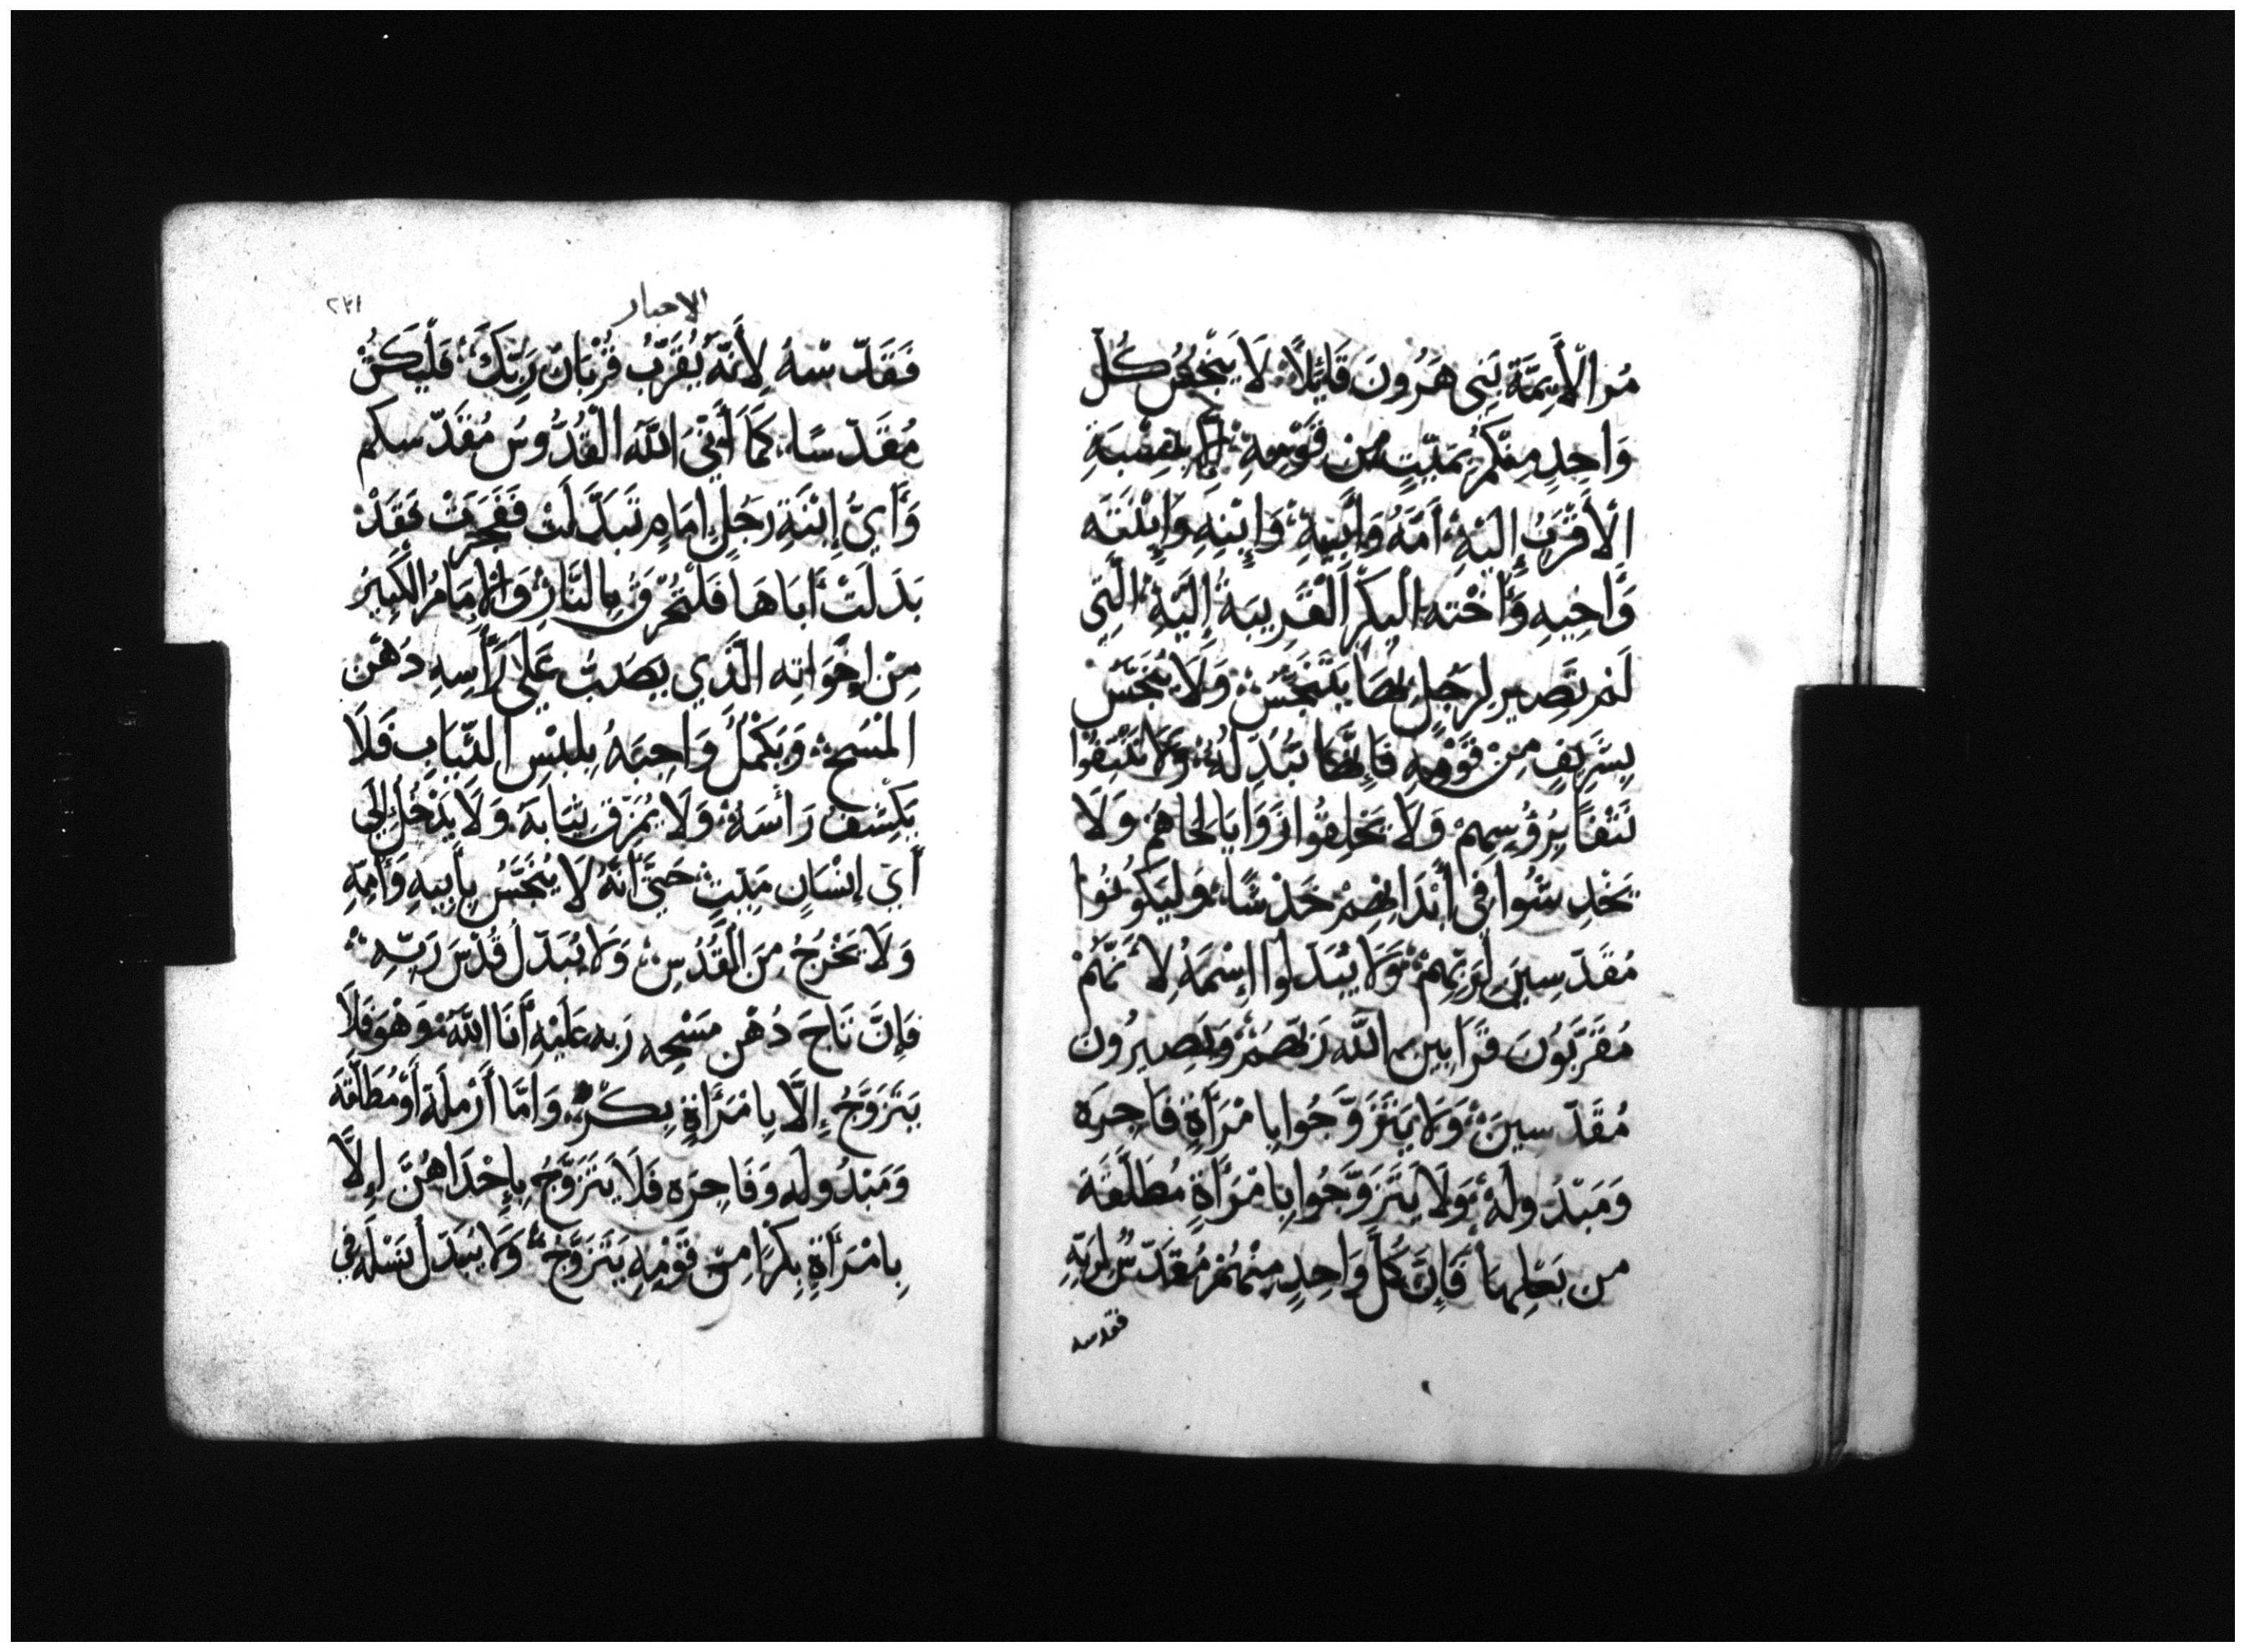 مُرِ الْأَيِمَّةَ بَنِي هَرُونَ قَائِلًا لَا يَنْجُسْ كُل
وَاحِدٍ مِنْكُمْ بِمَيِّتٍ مِن قَوْمِهِ
الْأَقْرَبُ إِلَيْهِ أُمِّهُ وَأَبِيهِ وَإِبْنِهِ وَإِبْنَتَه
وَأَخِيهِ وَأُخْتِهِ الْبِكْرَ الْقَرِيبَة إِلَيْهِ الَّتِي
لَمْ تَصِير لِرَجُلٍ بِهَا يَتَنَجَّسُ وَلَا يَنْجَسْ
بِشَرِيفٍ مِنْ قَوْمِهِ فَإِنَّهَا تُبْدَلَهُ وَلَا يَنْتِفُوا
نَتْفًا بِرُؤُسِهِمْ وَلَا يَحْلِقُوا زَوَايَا لِحَاهُمْ وَلَا
يَخْدِشُوا فِي أَبْدَانِهِمْ خَدْشًا وَلْيَكُونُوا
مُقَدَّسِينَ لِرَبِّهِمْ وَلَا يُبَدِّلُوا إِسْمَهُ لِأَنَّهُمْ
مُقَرِّبُونَ قَرَابِين اللَّه رَبِّهِمْ وَيَصِيرُون
مُقَدَّسِينَ وَلَا يَتَزَوَّجُوا بِامْرَأَةٍ فَاجِرَه
وَمَبْدُولَهُ وَلَا يَتَزَوَّجُوا بِامْرَأَةٍ مُطَلَّقَة
من بَعْلِهَا فَإِنَّ كُلَّ وَاحِدٍ مِنْهُمْ مُقَدَّسٌ لِرَبِّهِ
فقدسه
الاحبار
٢٣١
فَقَدِّسْهُ لِأَنَّهُ يُقَرِّبُ قُرْبَانَ رَبِّكَ فَلْيَكُنْ
مُقَدَّسًا كَمَا أَنِّي اللَّهُ الْقُدُّوسُ مُقَدِّسكم
وَأَيُّ إِبْنَةِ رَجُلٍ إِمَامٍ تَبَدَّلَتْ فَفَجَرَتْ فَقَدْ
بَدَلَتْ أَبَاهَا فَلْتُحْرَقْ بِالنَّارِ وَالْإِمَامُ الْكَبِيرُ
مِنْ إِخْوَاتِه الَّذِي يُصَبُّ عَلَى رَأْسِهِ دُهْن
الْمَسْحِ وَيَكْمُلُ وَاجِبَهُ بِلِبْسِ الثِّيَابِ فَلَا
يَكْشِفْ رَأْسَهُ وَلَا يُمَزِّقْ ثِيَابَهُ وَلَا يَدْخُلْ إِلَى
أَيِّ إِنْسَانٍ مَيِّتٍ حَتَّى أَنَّهُ لَا يَنْجَسُ بِأَبِيهِ وَأُمِّهِ
وَلَا يَخْرُجُ مِنَ الْقُدْسِ وَلَا يُبَدِّلُ قُدْسَ رَبِّهِ
فَإِنَّ تَاجَ دُهْنِ مَسْحِه رَبِه عَلَيْهِ أَنَا اللَّهُ وَهُوَ فَلَا
يَتَزَوَّجُ إِلَّا بِامْرَأَةٍ بِكْرٍ وَأَمَّا أَرْمَلَةً أَوْ مُطَلَّقَة
وَمَبْدُولَه وَفَاجِرَه فَلَا يَتَزَوَّجُ بِإِحْدَاهُنَّ إِلَّا
بِامْرَأَةٍ بِكْرًا مِنْ قَوْمِهِ يَتَزَوَّجُ وَلَا يُبَدِّل نَسْلَهُ فِي